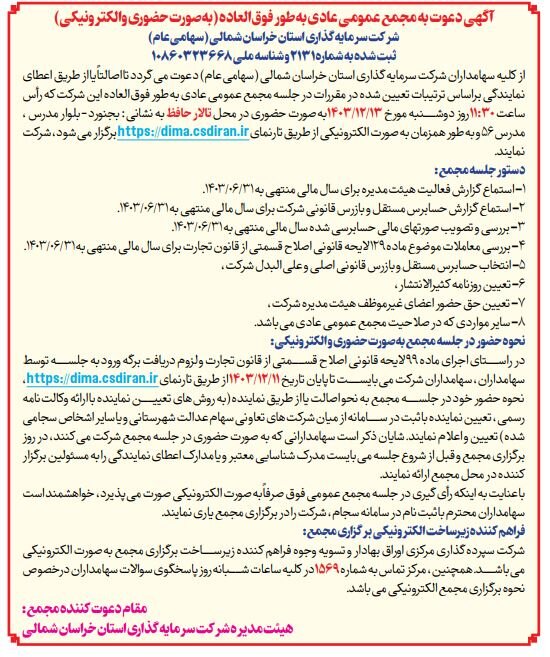 آگهی دعوت به مجمع عمومی عادی به طور فوق العاده (به صورت حضوری و الکترونیکی)
شرکت سرمایه گذاری استان خراسان شمالی (سهامی عام)
ثبت شده به شماره ۲۱۳۱ و شناسه ملی ۱۰۸۶۰۳۲۳۶۶۸
از کلیه سهامداران شرکت سرمایه گذاری استان خراسان شمالی (سهامی عام) دعوت می گردد تا اصالتاً یا از طریق اعطای
نمایندگی براساس ترتیبات تعیین شده در مقررات در جلسه مجمع عمومی عادی به طور فوق العاده این شرکت که رأس
ساعت ۱۱:۳۰ روز دوشنبه مورخ ۱۴۰۳/۱۲/۱۳ به صورت حضوری در محل تالار حافظ به نشانی : بجنورد - بلوار مدرس ،
مدرس ۵۶ و به طور همزمان به صورت الکترونیکی از طریق تارنمای https://dima.csdiran.ir برگزار می شود ، شرکت
نمایند.
دستور جلسه مجمع:
۱- استماع گزارش فعالیت هیئت مدیره برای سال مالی منتهی به ۱۴۰۳/۰۶/۳۱.
۲- استماع گزارش حسابرس مستقل و بازرس قانونی شرکت برای سال مالی منتهی به ۱۴۰۳/۰۶/۳۱.
۳- بررسی و تصویب صورتهای مالی حسابرسی شده سال مالی منتهی به ۱۴۰۳/۰۶/۳۱.
۴- بررسی معاملات موضوع ماده ۱۲۹ لایحه قانونی اصلاح قسمتی از قانون تجارت برای سال مالی منتهی به ۱۴۰۳/۰۶/۳۱.
۵- انتخاب حسابرس مستقل و بازرس قانونی اصلی و علی البدل شرکت ،
۶- تعیین روزنامه کثیرالانتشار ،
۷- تعیین حق حضور اعضای غیرموظف هیئت مدیره شرکت ،
۸- سایر مواردی که در صلاحیت مجمع عمومی عادی می باشد.
نحوه حضور در جلسه مجمع به صورت حضوری و الکترونیکی:
در راستای اجرای ماده ۹۹ لایحه قانونی اصلاح قسمتی از قانون تجارت و لزوم دریافت برگه ورود به جلسه توسط
سهامداران ، سهامداران شرکت می بایست تا پایان تاریخ ۱۴۰۳/۱۲/۱۱ از طریق تارنمای https://dima.csdiran.ir ،
نحوه حضور خود در جلسه مجمع به نحو اصالت یا از طریق نماینده (به روش های تعیین نماینده با ارائه وکالت نامه
رسمی ، تعیین نماینده با ثبت در سامانه از میان شرکت های تعاونی سهام عدالت شهرستانی و یا سایر اشخاص سجامی
شده) تعیین و اعلام نمایند. شایان ذکر است سهامدارانی که به صورت حضوری در جلسه مجمع شرکت می کنند، در روز
برگزاری مجمع و قبل از شروع جلسه می بایست مدرک شناسایی معتبر و یا مدارک اعطای نمایندگی را به مسئولین برگزار
کننده در محل مجمع ارائه نمایند.
با عنایت به اینکه رأی گیری در جلسه مجمع عمومی فوق صرفاً به صورت الکترونیکی صورت می پذیرد ، خواهشمند است
سهامداران محترم با ثبت نام در سامانه سجام ، شرکت را در برگزاری مجمع یاری نمایند.
فراهم کننده زیرساخت الکترونیکی برگزاری مجمع:
شرکت سپرده گذاری مرکزی اوراق بهادار و تسویه وجوه فراهم کننده زیرساخت برگزاری مجمع به صورت الکترونیکی
می باشد. همچنین ، مرکز تماس به شماره ۱۵۶۹ در کلیه ساعات شبانه روز پاسخگوی سوالات سهامداران درخصوص
نحوه برگزاری مجمع الکترونیکی می باشد.
مقام دعوت کننده مجمع:
هیئت مدیره شرکت سرمایه گذاری استان خراسان شمالی